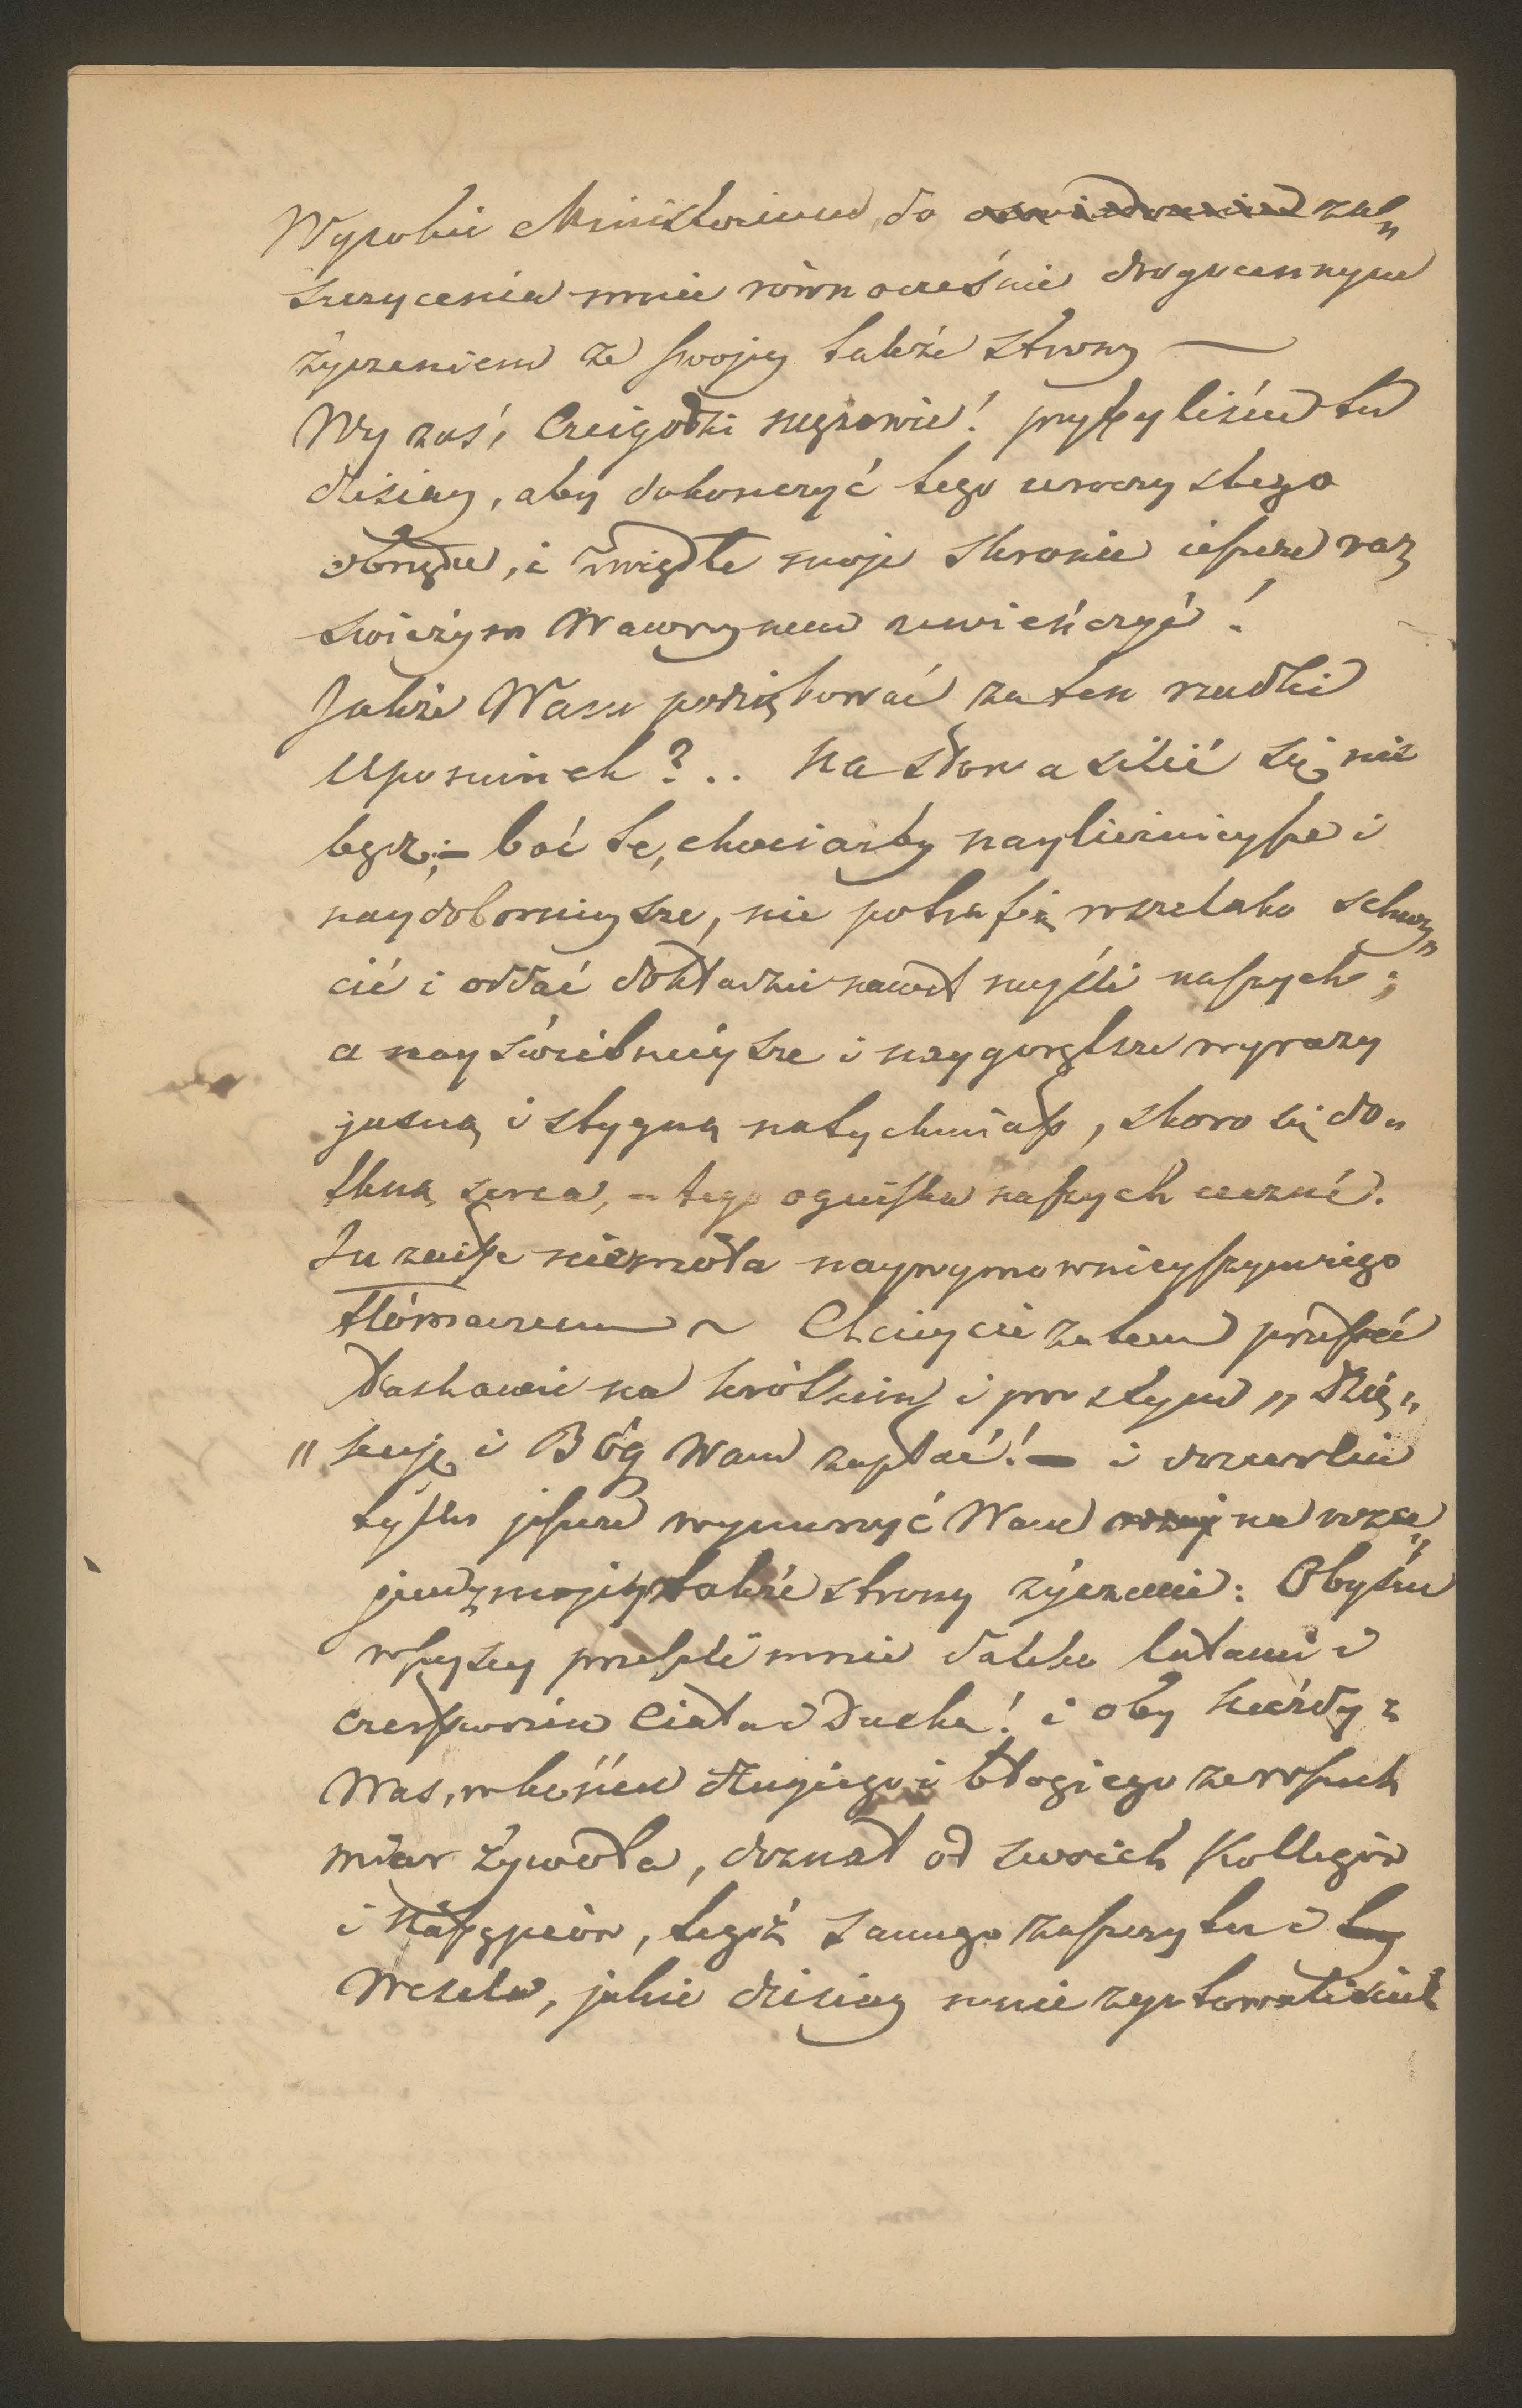 Wysokie Ministerium, do oświadczenia za„
szczycenia mnie równocześnie drogocennym
życzeniem ze swojey także strony —
Wy zaś, Czcigodni mężowie! przyszyliście tu
dzisiay, aby dokonczyć tego uroczystego
obrzędu, i zwiędłe moje skronie ieszcze raz
świeżym Wawrzynem uwieńczyć!
Jakże Wam podziękować za ten rzadki
Upominek?.. Na słowa silić się nie
będę; – boć te, chociażby nayliczniejsze i
naydoborniejsze, nie potrafią wszelako schwy„
cić i oddać dokładnie nawet myśli naszych;
a nayświetniejsze i naygorętsze wyrazy
gasną i stygną natychmiast, skoro się do„
tkną serca, – tego ogniska naszych uczuć.
Tu zaiste niemota naywymownieyszym iego
tłómaczem ~ Chciejcie zatem przestać
łaskawie na krótkim i prostym „Dzię„
„kuję i Bóg Wam zapłać! – i dozwólcie
tylko jeszcze wynurzyć Wam na wza„
jem z mojey także strony życzenie: Obyście
wszyscy przeszli mnie daleko latami i
czerstwością Ciała i Ducha! i oby każdy z
Was, w końcu długiego i błogiego ze wszech
miar żywota, doznał od swoich Kollegów
i Następców, tegoż samego zaszczytu i
Wesela, jakie dzisiay mnie zgotowaliście!